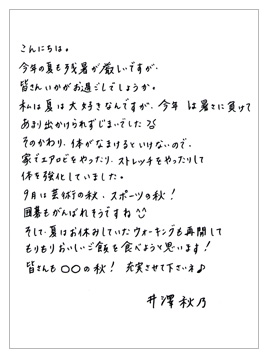 こんにちは。
今年の夏も残暑が厳しいですが、
皆さんいかがお過ごしでしょうか。
私は夏は大好きなんですが、今年は暑さに負けて
あまり出かけられずじまいでした
そのかわり、体がなまけるといけないので、
家でエアロビをやったり、ストレッチをやったりして
体を強化していました。
9月は芸術の秋、スポーツの秋!
囲碁もがんばれそうですね
そして、夏はお休みしていたウォーキングも再開して
もりもりおいしいご飯を食べようと思います!
皆さんも〇〇の秋!充実させて下さいネ♪
井澤秋乃